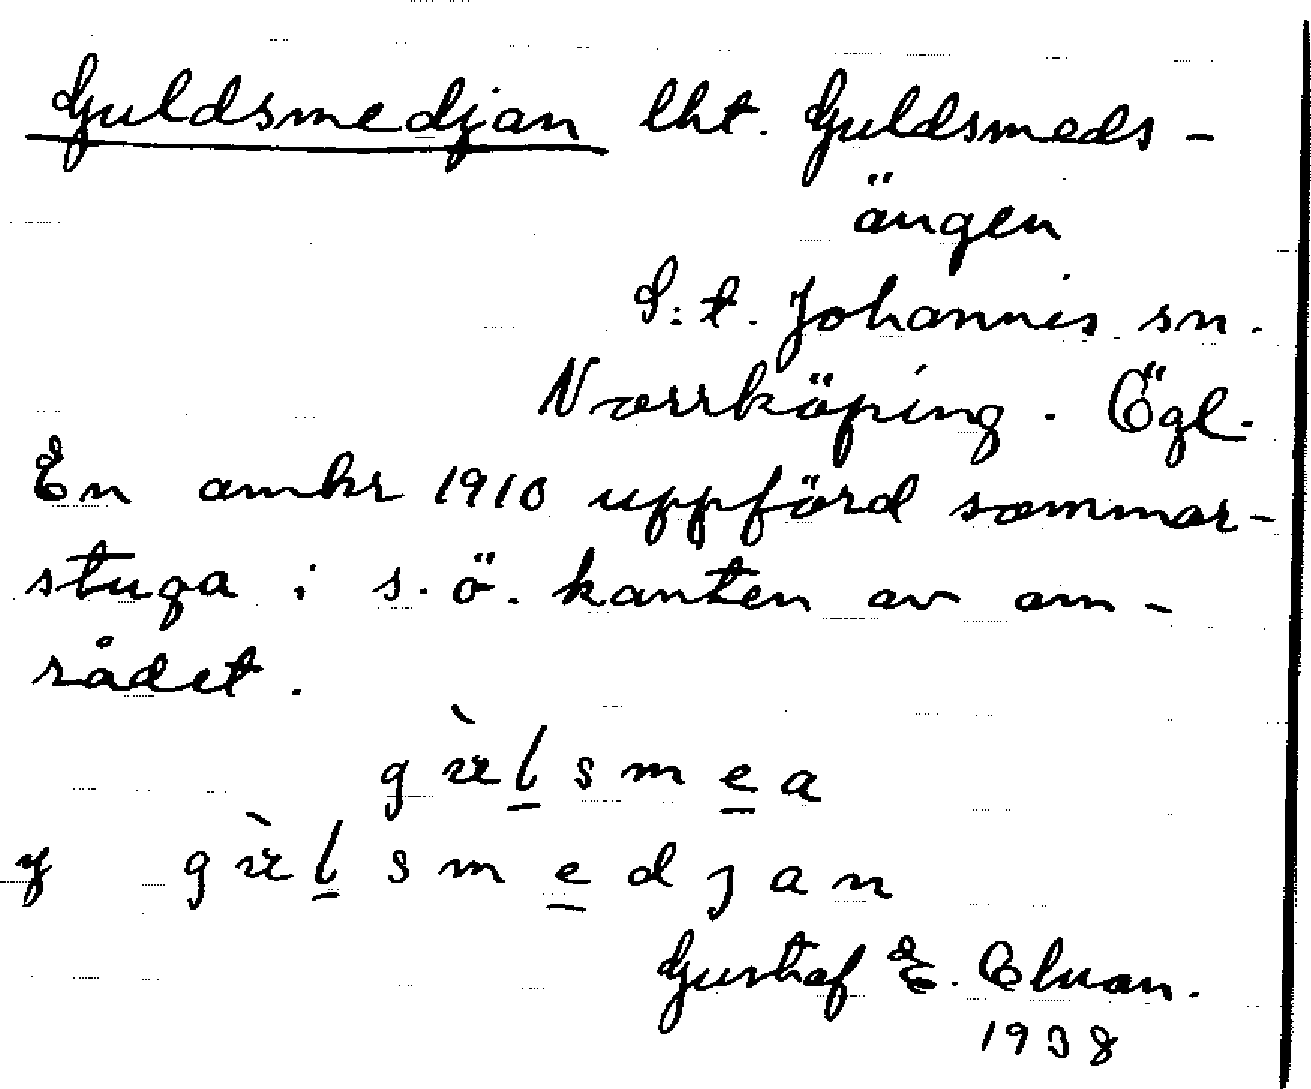 Guldsmedjan lht. Guldsmeds-
ängen
S:t. Johannis sn.
Norrköping. Ögl.
En omkr 1910 uppförd sommar-
stuga i s.ö. kanten av om-
rådet.
smea
y smedjan
Gustaf E.
1938